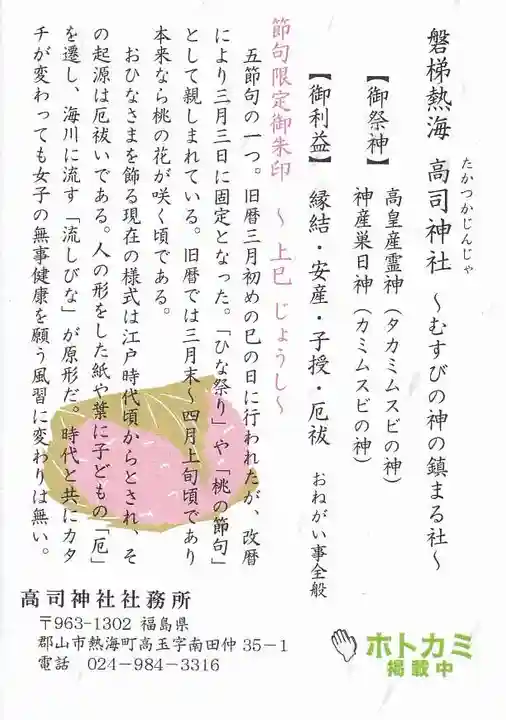 磐梯熱海 高司神社 〜むすびの神の鎮まる社〜
たかつかじんじゃ
【御祭神】 高皇産霊神(タカミムスビの神)
神産巣日神(カミムスビの神)
【御利益】 縁結・安産・子授・厄祓 おねがい事全般
節句限定御朱印 〜 上巳 じょうし〜
五節句の一つ。旧暦三月初めの巳の日に行われたが、改暦
により三月三日に固定となった。「ひな祭り」や「桃の節句」
として親しまれている。旧暦では三月末〜四月上旬頃であり
本来なら桃の花が咲く頃である。
おひなさまを飾る現在の様式は江戸時代頃からとされ、そ
の起源は厄祓いである。人の形をした紙や葉に子どもの「厄」
を遷し、海川に流す「流しびな」が原形だ。時代と共にカタ
チが変わっても女子の無事健康を願う風習に変わりは無い。
高司神社社務所
〒963-1302 福島県
郡山市熱海町高玉字南田仲 35-1
電話 024-984-3316
ホトカミ
掲載中